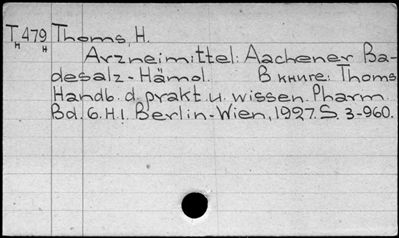 T 479 Thoms, H.
H H
Arzneimittel: Aachener Ba-
desalz-Hämol. В книге: Thoms
Handb. d. prakt. u. wissen. Pharm.
Bd. 6. H.I. Berlin-Wien, 1927. S. 3-960.